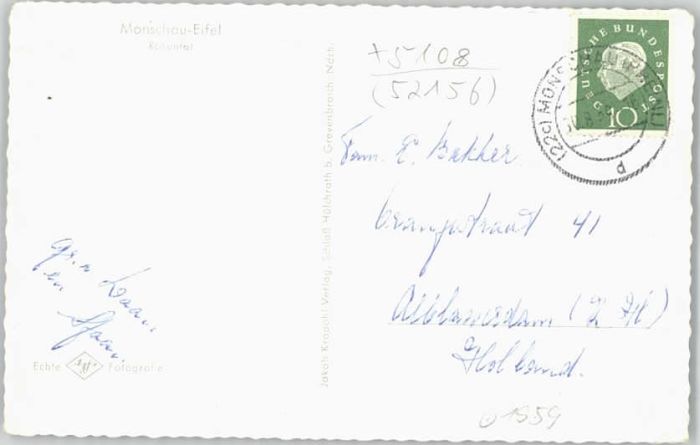 Monschau-Eifel
+5108
(52156)
DEUTSCHE BUNDESPOST
10
(22c) MONSCHAU
d
Fam. E. Bakker.
Oranjestraat 41
Alblasserdam (Z.H)
Holland.
Gr. v. Daan
en Sjaan.
Echte Agfa Fotografie
Jakob Krapohl Verlag, Schloß Hülchrath b. Grevenbroich, Nachr.
1959